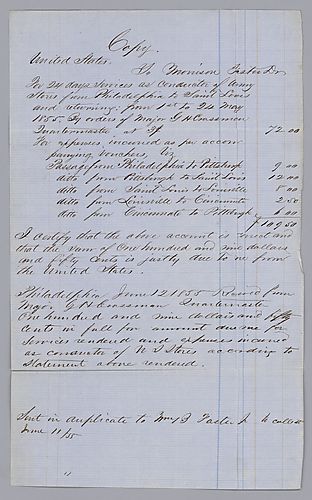 Copy.
United States.
To Morrison Foster Dr
For 24 days services as Conductor of Army
Stores from Philadelphia to Saint Louis
and returning from 1st to 24 May
1855. By orders of Major G H Crossman
Quartermaster at 3$ 72.00
For expenses incurred as per accom-
panying vouchers, viz
Passage from Philadelphia to Pittsburgh 9.00
ditto from Pittsburgh to Saint Louis 12.00
ditto from Saint Louis to Louisville 8.00
ditto from Louisville to Cincinnati 2.50
ditto from Cincinnati to Pittsburgh 6.00
$109.50
I certify that the above account is just and
that the sum of One hundred and nine dollars
and fifty cents is justly due to me from
the United States.
Philadelphia June 12 1855 Received from
Major G H Crossman Quartermaster
One hundred and nine dollars and fifty
cents in full for amount due me for
services rendered and expenses incurred
as conductor of U S Stores according to
statement above rendered.
Sent in duplicate to Wm B Foster Jr to collect
June 11/55